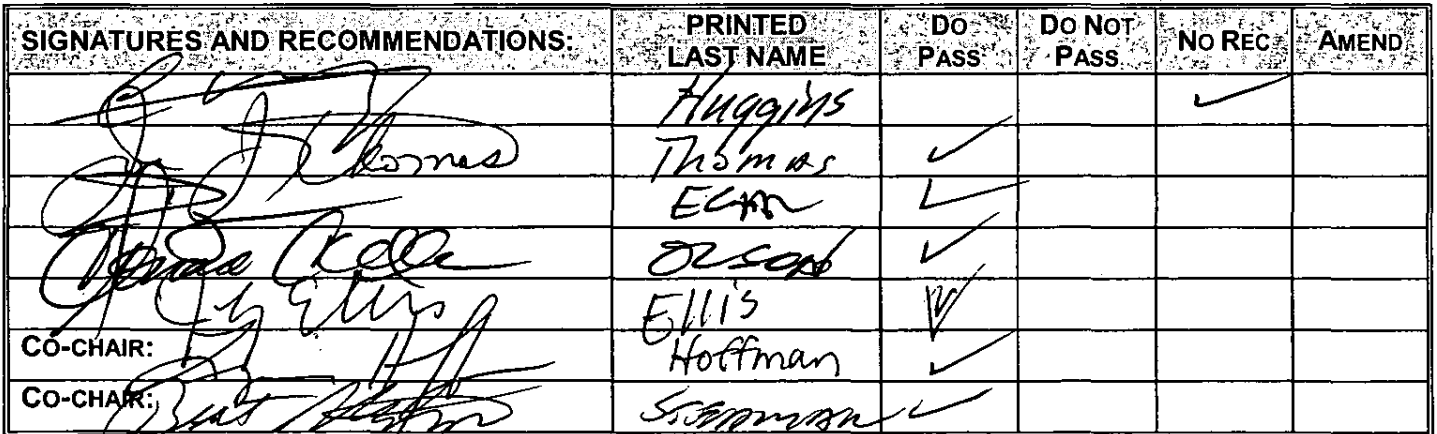 SIGNATURES AND RECOMMENDATIONS: PRINTED LAST NAME DO PASS DO NOT PASS NO REC AMEND
Huggins ✓
Thomas Thomas ✓
EGAN ✓
OLSON ✓
Ellis Ellis ✓
CO-CHAIR: Hoffman ✓
CO-CHAIR: Bert Stedman ✓